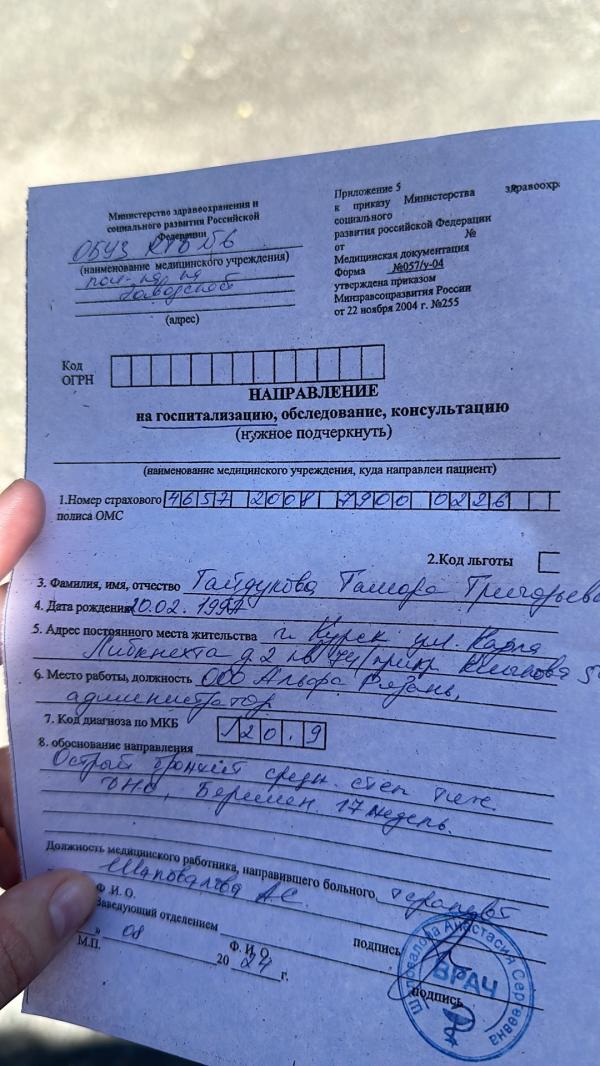 Министерство здравоохранения и
социального развития Российской
Федерации
ОБУЗ
(наименование медицинского учреждения)
(адрес)
Приложение 5
к приказу Министерства здравоохр
социального
развития российской Федерации
от №
Медицинская документация
Форма №057/у-04
утверждена приказом
Минправсоцразвития России
от 22 ноября 2004 г. №255
Код
ОГРН
НАПРАВЛЕНИЕ
на госпитализацию, обследование, консультацию
(нужное подчеркнуть)
(наименование медицинского учреждения, куда направлен пациент)
1.Номер страхового 4657 2008 7900 0226
полиса ОМС
2.Код льготы
3. Фамилия, имя, отчество Гайдукова Тамара Григорьев
4. Дата рождения 20.02.
5. Адрес постоянного места жительства г. Курск ул. Карла
Либкнехта д.2 кв 74/
6. Место работы, должность ООО Альфа Рязань,
администратор
7. Код диагноза по МКБ J20.9
8. обоснование направления
Острый бронхит средн. степ тяж.
ДН0, Беремен. 17 недель.
Должность медицинского работника, направившего больного терапевт
Шаповалова АС.
Ф. И. О.
подпись
Заведующий отделением
Ф. И. О.
подпись
» 08 20 24 г.
М.П.
Шаповалова Анастасия Сергеевна
ВРАЧ